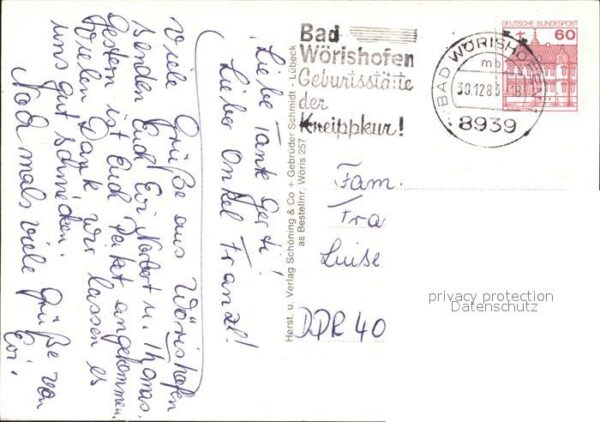 Liebe Tante Gerti!
Lieber Onkel Franzl!
Viele Grüße aus Wörishofen
senden Euch Evi Norbert u. Thomas.
Gestern ist Euch Paket angekommen.
Vielen Dank wir lassen es
uns gut schmecken.
Noch mals viele Grüße von
Evi.
Herst. u. Verlag Schöning & Co + Gebrüder Schmidt - Lübeck
as Bestellnr. Wöris 257
Bad
Wörishofen
Geburtsstätte
der
Kneippkur!
BAD WÖRISHOFEN 1
mb
30.12.83
8939
DEUTSCHE BUNDESPOST
60
Fam.
Fra
Luise
DDR 40
privacy protection
Datenschutz